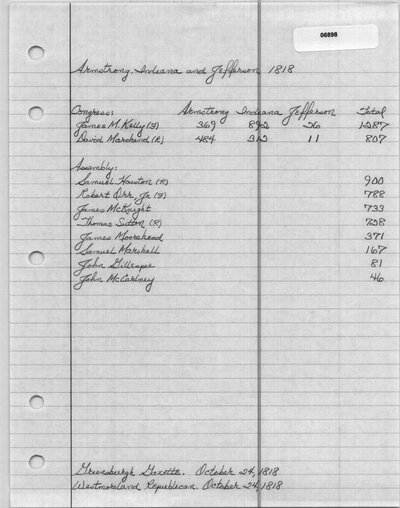 06898
Armstrong, Indiana and Jefferson 1818
Congress: Armstrong Indiana Jefferson Total
James M. Kelly (F) 369 892 26 1287
David Marchand (R) 484 312 11 807
Assembly:
Samuel Houston (R) 900
Robert Orr, Jr. (F) 788
James McKnight 733
Thomas Sutton (R) 728
James Moorehead 371
Samuel Marshall 167
John Gillespie 81
John McCartney 46
Greensburgh Gazette. October 24, 1818
Westmoreland Republican. October 24, 1818